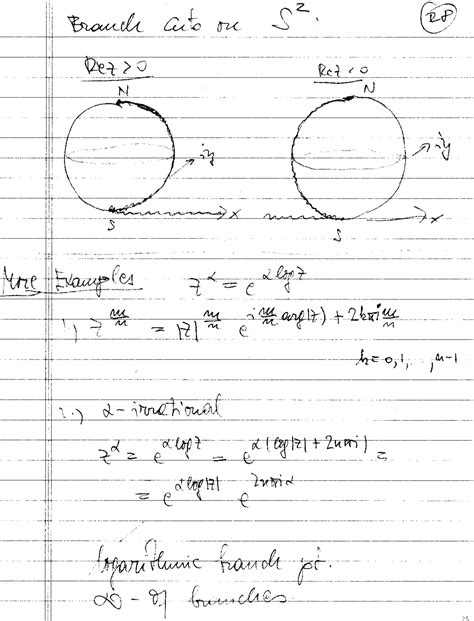 Branch cuts on S². R8
Re z > 0
Re z < 0
N
N
iy
iy
x
x
S
S
More Examples z^α = e^{α log z}
1.) z^{m/n} = |z|^{m/n} e^{i m/n arg(z) + 2kπi m/n}
k = 0, 1, .., n-1
2.) α - irrational
z^α = e^{α log z} = e^{α(log|z| + 2nπi)} =
= e^{α log|z|} e^{2nπiα}
logarithmic branch pt.
∞ - of branches